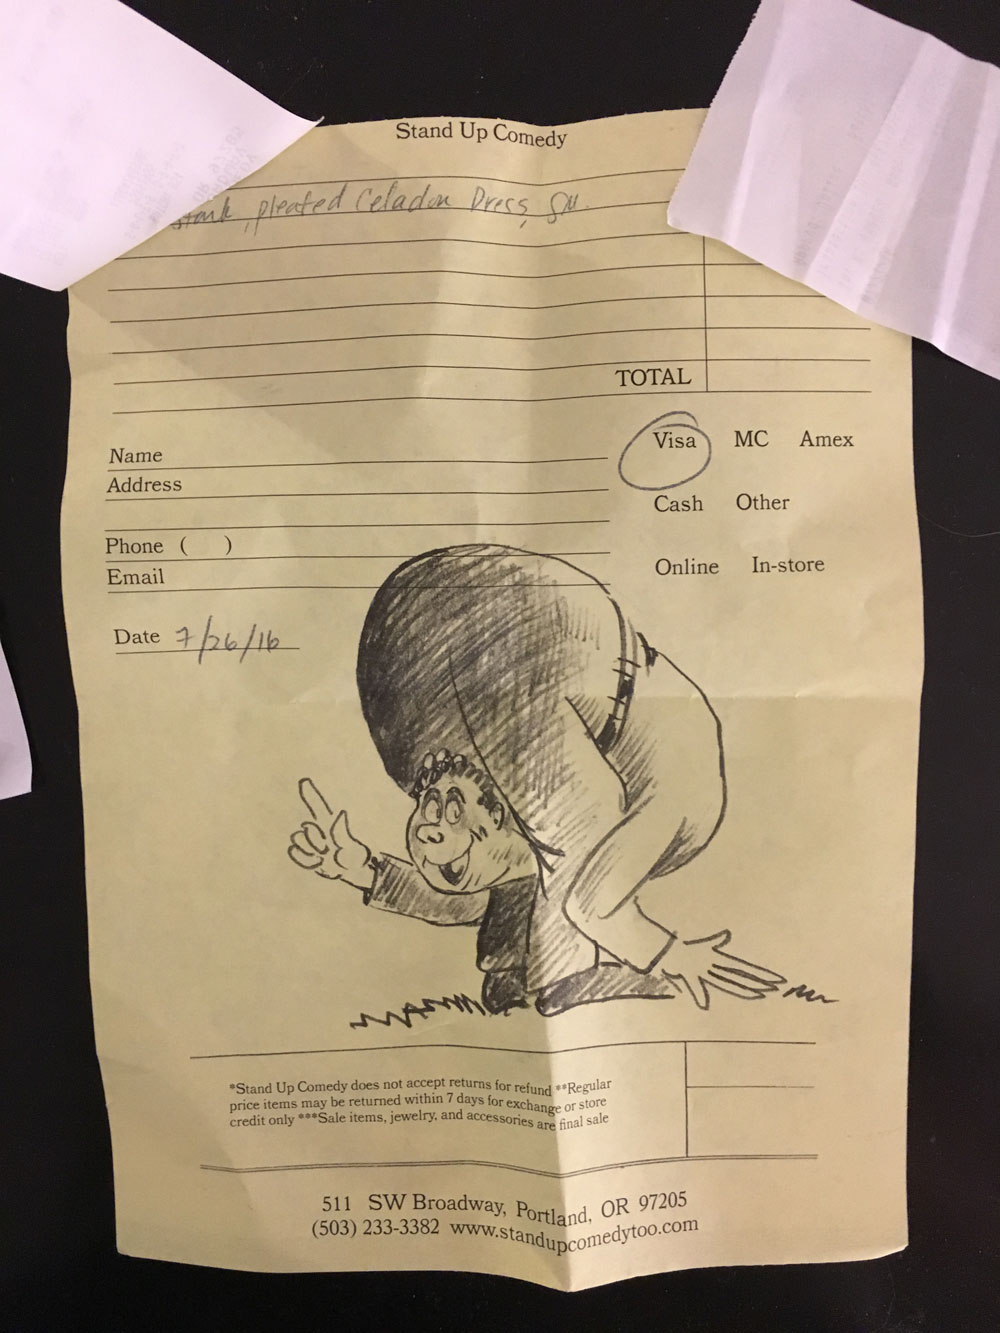 Stand Up Comedy
pleated Celadon Dress, SM.
TOTAL
Visa MC Amex
Name
Address
Cash Other
Phone ( )
Email
Online In-store
Date 7/26/16
*Stand Up Comedy does not accept returns for refund **Regular
price items may be returned within 7 days for exchange or store
credit only ***Sale items, jewelry, and accessories are final sale
511 SW Broadway, Portland, OR 97205
(503) 233-3382 www.standupcomedytoo.com